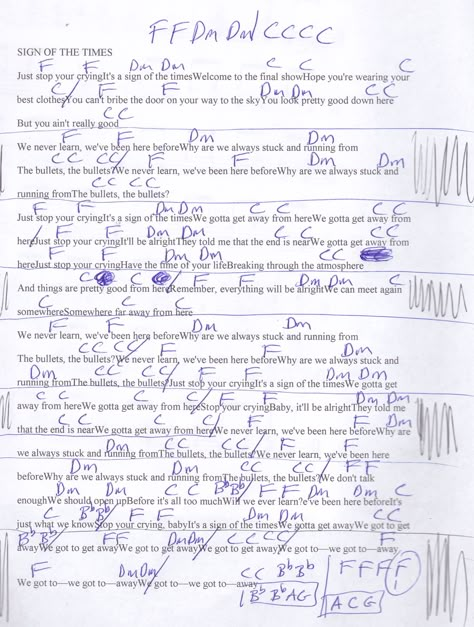 F F Dm Dm / C C C C
SIGN OF THE TIMES
F F Dm Dm C C C
Just stop your cryingIt's a sign of the timesWelcome to the final showHope you're wearing your
C F F Dm Dm C C
best clothesYou can't bribe the door on your way to the skyYou look pretty good down here
C C
But you ain't really good
F F Dm Dm
We never learn, we've been here beforeWhy are we always stuck and running from
C C C C F F Dm Dm
The bullets, the bullets?We never learn, we've been here beforeWhy are we always stuck and
C C C C
running fromThe bullets, the bullets?
F F Dm Dm C C C C
Just stop your cryingIt's a sign of the timesWe gotta get away from hereWe gotta get away from
F F Dm Dm C C
hereJust stop your cryingIt'll be alrightThey told me that the end is nearWe gotta get away from
F F Dm Dm C C
hereJust stop your cryingHave the time of your lifeBreaking through the atmosphere
C C F F Dm Dm C
And things are pretty good from hereRemember, everything will be alrightWe can meet again
C C C
somewhereSomewhere far away from here
F F Dm Dm
We never learn, we've been here beforeWhy are we always stuck and running from
C C C C F F Dm
The bullets, the bullets?We never learn, we've been here beforeWhy are we always stuck and
Dm C C C C F F Dm Dm
running fromThe bullets, the bullets?Just stop your cryingIt's a sign of the timesWe gotta get
C C C C F F Dm Dm
away from hereWe gotta get away from hereStop your cryingBaby, it'll be alrightThey told me
C C C C F F Dm
that the end is nearWe gotta get away from hereWe never learn, we've been here beforeWhy are
Dm C C C C F F
we always stuck and running fromThe bullets, the bullets?We never learn, we've been here
Dm Dm C C C C F F
beforeWhy are we always stuck and running fromThe bullets, the bullets?We don't talk
Dm Dm C C Bb Bb F F Dm Dm C
enoughWe should open upBefore it's all too muchWill we ever learn?e've been here beforeIt's
C Bb Bb F F Dm Dm C C
just what we knowStop your crying, babyIt's a sign of the timesWe gotta get awayWe got to get
Bb Bb F F Dm Dm C C C C F
awayWe got to get awayWe got to get awayWe got to get awayWe got to—we got to—away
F Dm Dm C C Bb Bb F F F F
We got to—we got to—awayWe got to—we got to—away
Bb Bb A G A C G